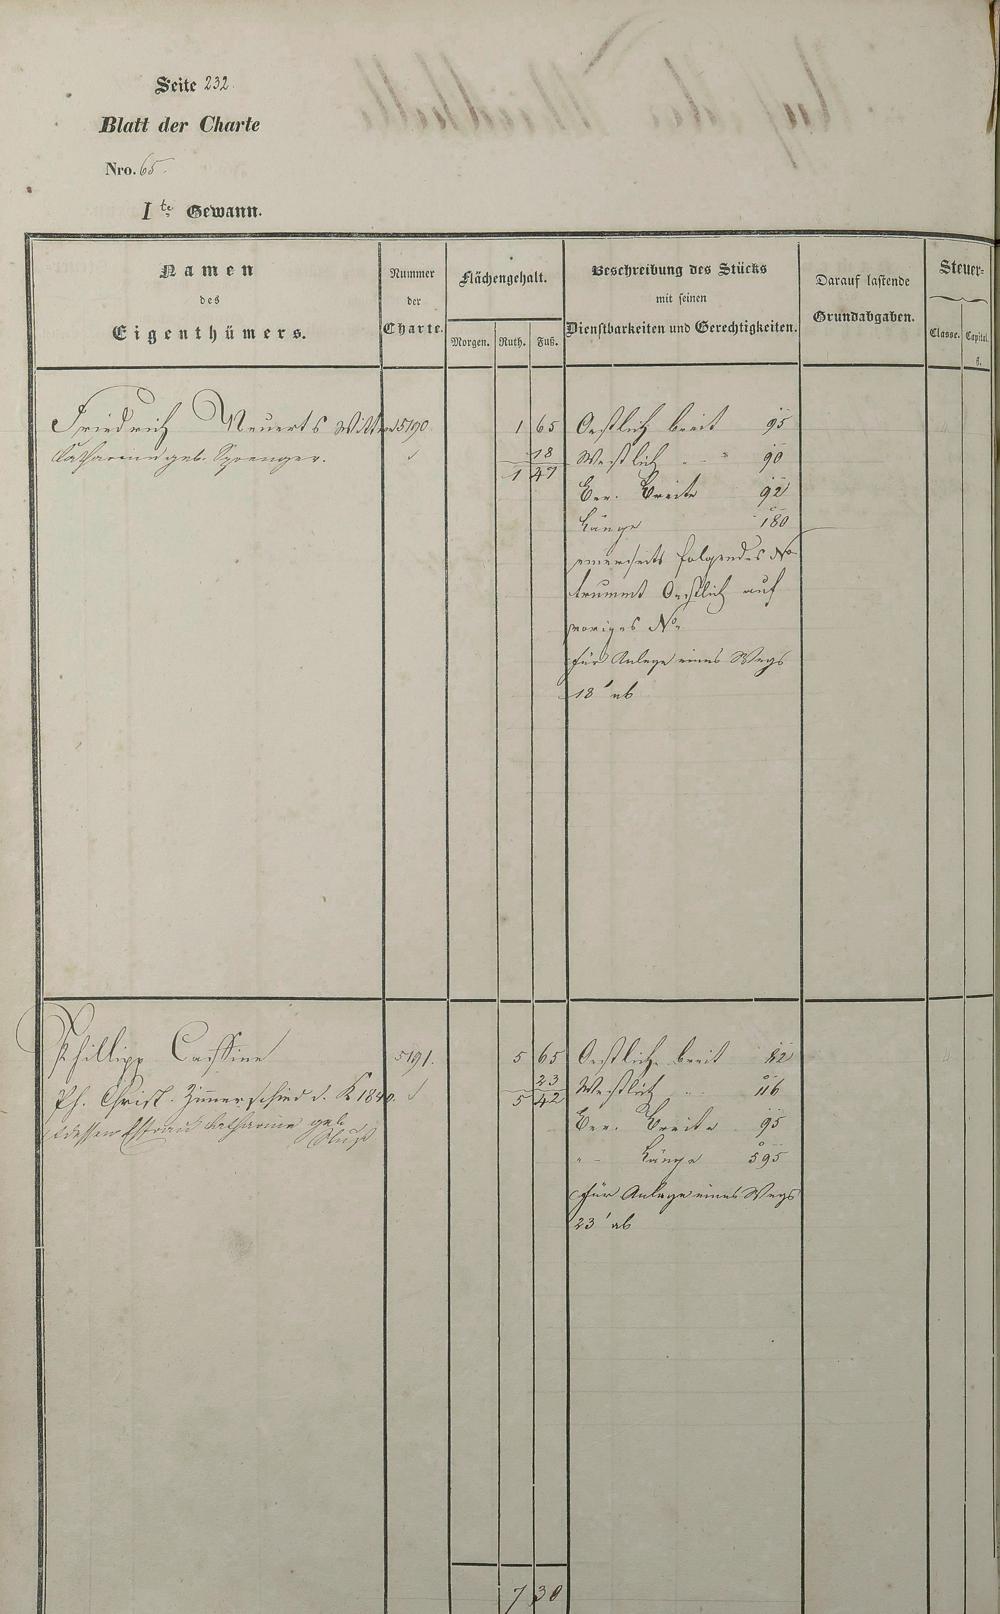 Seite 232.
Blatt der Charte
Nro. 65.
I te Gewann.
Namen
des
Eigenthümers.
Nummer
der
Charte.
Flächengehalt.
Morgen. Ruth. Fuß.
Beschreibung des Stücks
mit seinen
Dienstbarkeiten und Gerechtigkeiten.
Darauf lastende
Grundabgaben.
Steuer=
Classe. Capital.
fl.
Friedrich Neuerts Wittwe 5190 1 65 Oestlich breit 95
Catharine geb. Sprenger. 18 Westlich " 90
1 47
Ber. Breite 92
Länge 180
einerseits folgendes No
trummt Oestlich auf
voriges No.
für Anlage eines Wegs
18' ab
Phillipp Cassine 5191. 5 65 Oestlich breit 82
Ph. Christ. Zimmerschied d. K 1840. 23 Westlich " 116
5 42
dessen Ehfrau Catharine geb.
Ber. Breite 95
" Länge 595
für Anlage eines Wegs
23' ab
7 30